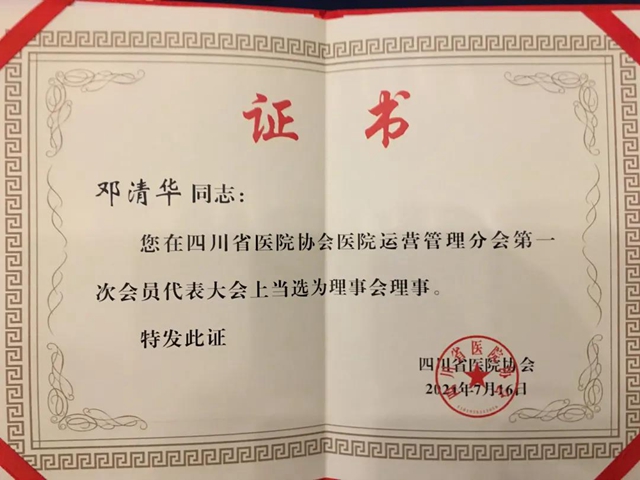 证 书
邓清华 同志：
您在四川省医院协会医院运营管理分会第一
次会员代表大会上当选为理事会理事。
特发此证
四川省医院协会
2021年7月16日